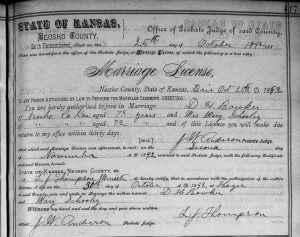 STATE OF KANSAS,
NEOSHO COUNTY.
Office of Probate Judge of said County.
Be it Remembered, That on the 25th day of October 1892
there was issued from the office of said Probate Judge, a Marriage License, of which the following is a true copy:
Marriage License.
Neosho County, State of Kansas, Erie Oct 25th D. 1892
TO ANY PERSON AUTHORIZED BY LAW TO PERFORM THE MARRIAGE CEREMONY, GREETING:
You are hereby authorized to join in Marriage D. H. Bowker
of Neosho Co Kan aged 73 years and Mrs Mary Schooley
of " " " aged 72 and of this License you will make due
return to my office within thirty days.
[SEAL] J. W. Anderson Probate Judge.
And which said Marriage License was afterwards, to-wit: on the second day of
November A. D. 1892, returned to said Probate Judge, with the following Certificate
endorsed thereon, to-wit:
STATE OF KANSAS, NEOSHO COUNTY, ss.
I, L. J. Thompson Minister do hereby certify, that in accordance with the authorization of the within
License, I did, on the 30th day of October A. D. 1892, at Thayer
in said County, join and unite in Marriage the within named D. H. Bowker
and Mary Schooley
Witness my hand and seal the day and year above written.
L J Thompson
Attest: J. W. Anderson Probate Judge.